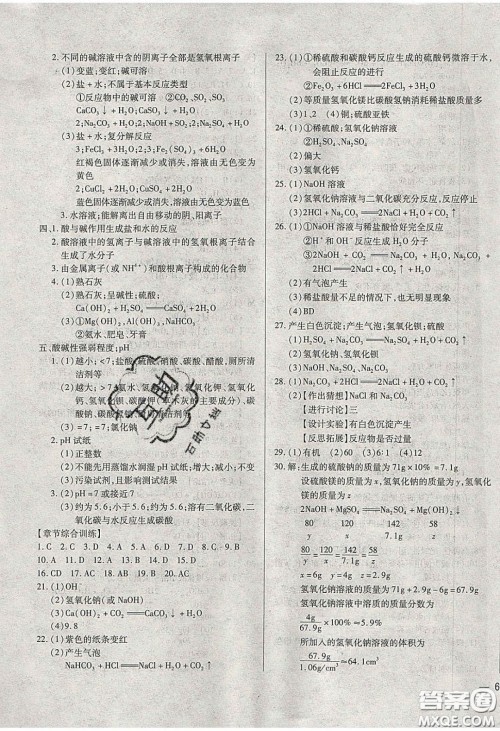 2. 不同的碱溶液中含的阴离子全部是氢氧根离子
(1)变蓝;变红;碱可溶
(2)盐+水;不属于基本反应类型
①反应物中碱可溶 ②CO₂、SO₂、SO₃
CaCO₃↓+H₂O;CaSO₄+H₂O;
2;Na₂CO₃+H₂O;2;Na₂SO₄+H₂O
(3)盐+水;复分解反应
3;FeCl₃+3H₂O;2;3;Fe₂(SO₄)₃+6H₂O
红褐色固体逐渐减少或消失,溶液由无色变为
黄色
2;CuCl₂+2H₂O;CuSO₄+2H₂O
蓝色固体逐渐减少或消失,溶液由无色变为蓝色
3. 水溶液;能解离出自由移动的阴、阳离子
四、1. 酸与碱作用生成盐和水的反应
2. 酸溶液中的氢离子与碱溶液中的氢氧根离子结合
生成了水分子
3. 由金属离子(或 NH⁴⁺)和酸根离子构成的化合物
4. (1)熟石灰
(2)熟石灰;呈碱性;硫酸;
Ca(OH)₂+H₂SO₄══CaSO₄+2H₂O
(3)①Mg(OH)₂、Al(OH)₃
②氨水、肥皂、牙膏
五、酸碱性强弱程度;pH
1. (1)越小;<7;盐酸、硫酸、硝酸、碳酸、醋酸、厕所清
洁剂等
2. pH 试纸
(1)正整数
(2)不能先用蒸馏水润湿 pH 试纸,否则可能有误差
(3)污染试剂,且影响测试结果
3. (1)pH=7 或接近 7
(2)约为 5.6;小于 5.6;正常雨水溶有二氧化碳,二
氧化碳与水反应生成碳酸
【章节综合训练】
1. C 2. D 3. C 4. B 5. A 6. D 7. C 8. C 9. B
10. C 11. A 12. B 13. D 14. A 15. D
16. CD 17. AC 18. A 19. B 20. B
21. (1)(OH)
(2)氢氧化钠(或 NaOH)
(3)Ca(OH)₂+CO₂══CaCO₃↓+H₂O
22. (1)紫色的纸条变红
(2)产生气泡
NaHCO₃+HCl══NaCl+H₂O+CO₂↑
23. (1)①稀硫酸和碳酸钙反应生成的硫酸钙微溶于水,
会阻止反应的进行
②Fe₂O₃+6HCl══2FeCl₃+3H₂O
(2)等质量氢氧化镁比碳酸氢钠消耗稀盐酸质量多
(3)1、2 (4)铜;硫酸亚铁
24. (1)①稀硫酸;氢氧化钠溶液
(2)偏大
(3)氯化氢
25. (1)NaOH 溶液
(2)氢氧化钠溶液与二氧化碳充分反应,反应停止
(3)2HCl+Na₂CO₃══2NaCl+H₂O+CO₂↑
26. (1)①NaOH 溶液与稀盐酸恰好完全反应
②H⁺和 OH⁻ ③方案二
(2)2HCl+Na₂CO₃══2NaCl+H₂O+CO₂↑
(2)有气泡产生
(3)稀盐酸的量不足的情况下,也无明显现象
(4)BD
27. 产生白色沉淀;产生气泡;氢氧化钡;硫酸
(1)氢氧化钠、氢氧化钡
28. (1)Na₂CO₃+2HCl══2NaCl+H₂O+CO₂↑
(2)【作出猜想】
【进行讨论】三
【设计实验】有白色沉淀产生
【反思拓展】反应物是否过量
29. (1)有机 (2)60 (3)6:1 (4)12
30. 解:生成的硫酸钠的质量为 71g×10%=7.1g
设硫酸镁的质量为 x,氢氧化钠的质量为 y,氢氧化
镁的质量为 z。
2NaOH+MgSO₄══Na₂SO₄+Mg(OH)₂↓
80 120 142 58
y x 7.1g z
80/y=120/x=142/7.1g=58/z
x=6g y=4g z=2.9g
氢氧化钠溶液的质量为 71g+2.9g−6g=67.9g
氢氧化钠溶液中溶质的质量分数为
4g/67.9g×100%≈5.9%
所加入的氢氧化钠溶液的体积为
67.9g/1.06g/cm³≈64.1cm³
6
答案圈
MXQE.COM